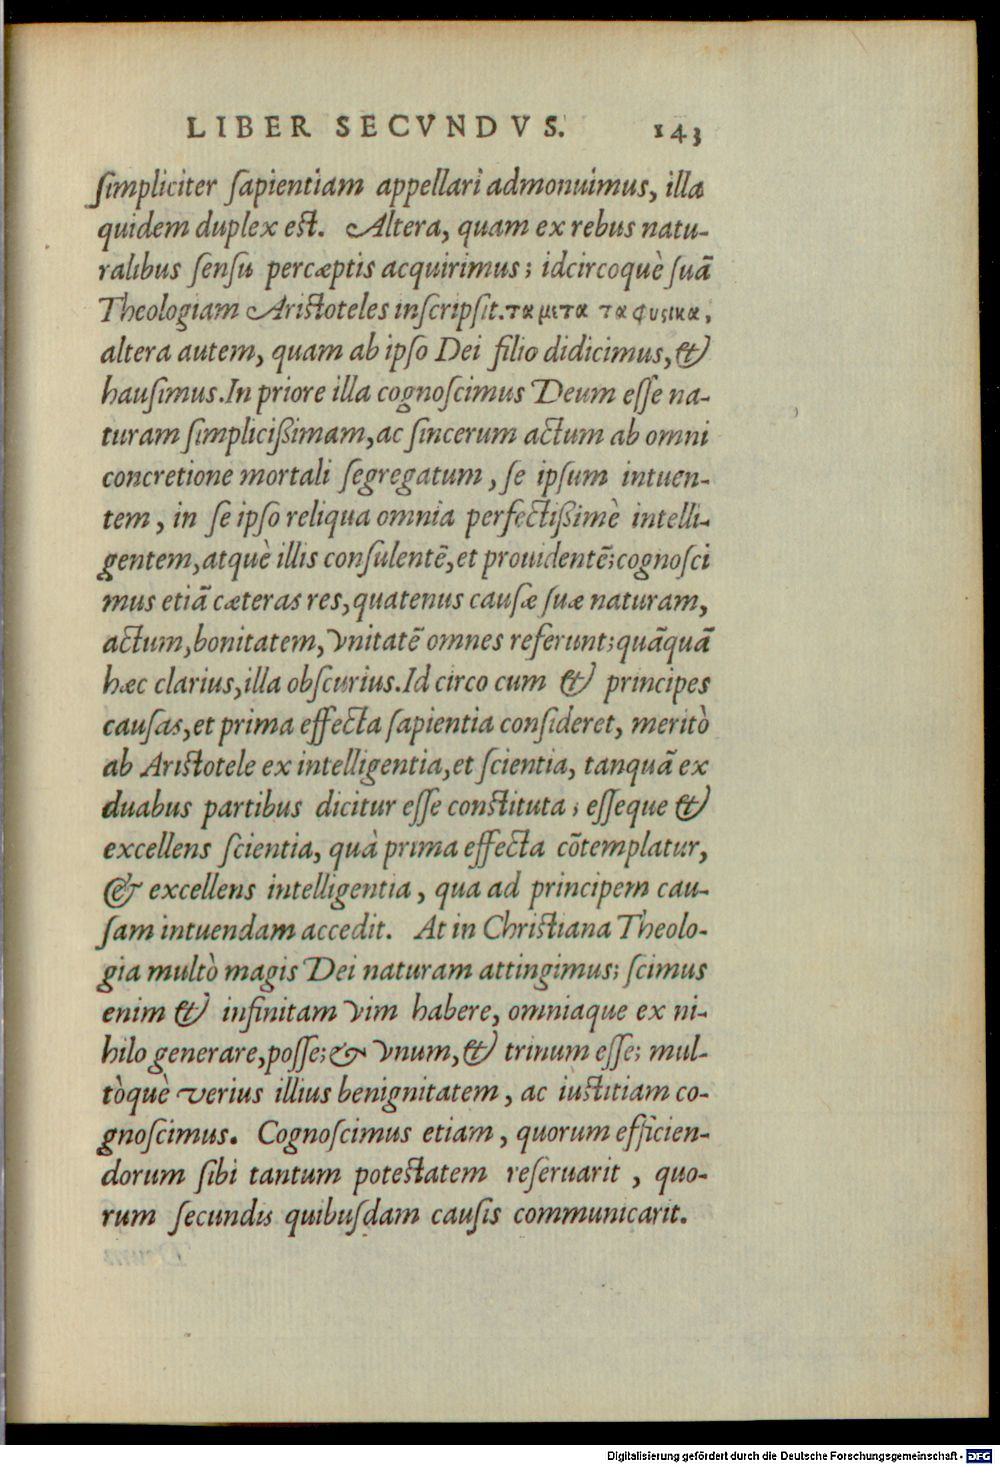 LIBER SECVNDVS. 143
simpliciter sapientiam appellari admonuimus, illa
quidem duplex est. Altera, quam ex rebus natu-
ralibus sensu percæptis acquirimus; idcircoquè suã
Theologiam Aristoteles inscripsit. τα μιτα τα φυσικα,
altera autem, quam ab ipso Dei filio didicimus, &
hausimus. In priore illa cognoscimus Deum esse na-
turam simplicißimam, ac sincerum actum ab omni
concretione mortali segregatum, se ipsum intuen-
tem, in se ipso reliqua omnia perfectißimè intelli-
gentem, atquè illis consulentẽ, et prouidentẽ; cognosci
mus etiã cæteras res, quatenus causæ suæ naturam,
actum, bonitatem, vnitatẽ omnes referunt; quãquã
hæc clarius, illa obscurius. Id circo cum & principes
causas, et prima effecta sapientia consideret, meritò
ab Aristotele ex intelligentia, et scientia, tanquã ex
duabus partibus dicitur esse constituta; esseque &
excellens scientia, quà prima effecta cõtemplatur,
& excellens intelligentia, qua ad principem cau-
sam intuendam accedit. At in Christiana Theolo-
gia multò magis Dei naturam attingimus; scimus
enim & infinitam vim habere, omniaque ex ni-
hilo generare, posse; & vnum, & trinum esse; mul-
tòquè verius illius benignitatem, ac iùstitiam co-
gnoscimus. Cognoscimus etiam, quorum efficien-
dorum sibi tantum potestatem reseruarit, quo-
rum secundis quibusdam causis communicarit.
Digitalisierung gefördert durch die Deutsche Forschungsgemeinschaft - DFG